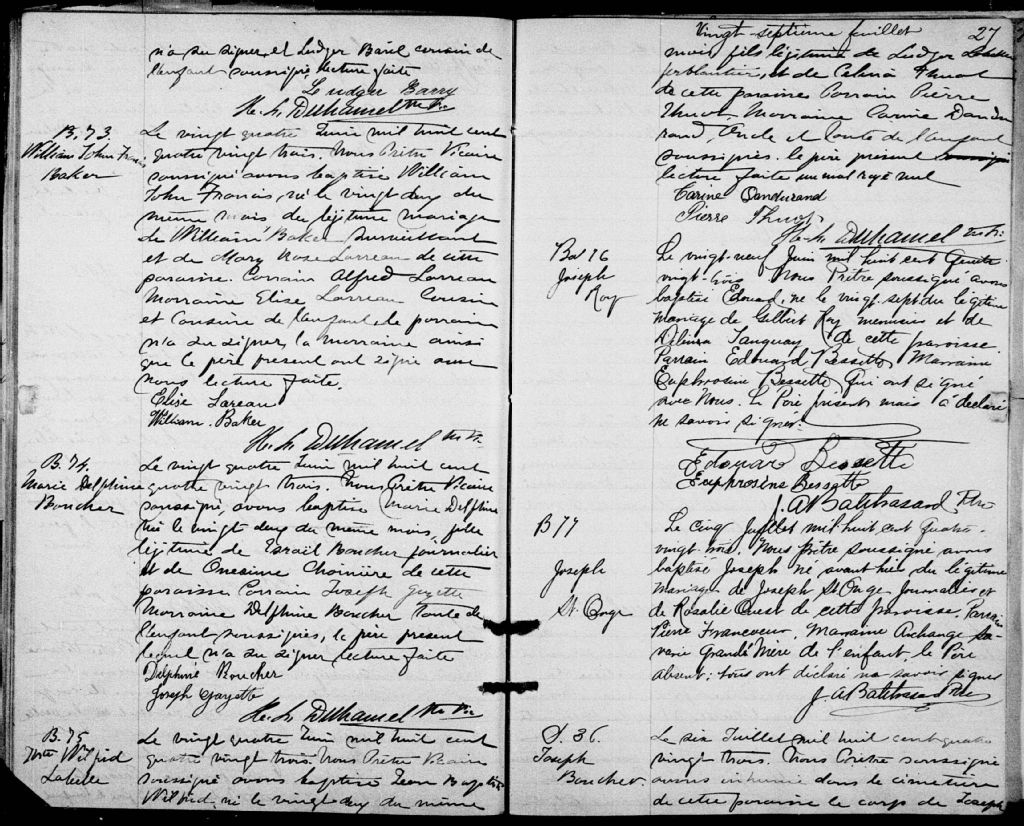 n'a su signer, et Ludger Baril cousin de
l'enfant soussigné, lecture faite
Ludger Barry
H. L. Duhamel Ptre Vic.
B. 73
William John Francis
Baker
Le vingt quatre Juin mil huit cent
quatre vingt trois. Nous Prêtre Vicaire
soussigné avons baptisé William
John Francis, né le vingt deux du
même mois du légitime mariage
de William Baker surveillant
et de Mary Rose Lareau de cette
paroisse. Parrain Alfred Lareau
Marraine Elise Lareau Cousin
et Cousine de l'enfant, le parrain
n'a su signer, la marraine ainsi
que le père présent ont signé avec
nous lecture faite.
Elise Lareau
William. Baker
H. L. Duhamel Ptre V.
B. 74.
Marie Delphine
Boucher
Le vingt quatre Juin mil huit cent
quatre vingt trois. Nous Prêtre Vicaire
soussigné, avons baptisé Marie Delphine
née le vingt deux du même mois, fille
légitime de Esraël Boucher journalier
et de Onesime Choinière de cette
paroisse Parrain Joseph Goyette
Marraine Delphine Boucher Tante de
l'enfant soussignés, le père présent
lequel n'a su signer lecture faite
Delphine Boucher
Joseph Goyette
H. L. Duhamel Ptre Vic
B. 75
Wilfrid
Labelle
Le vingt quatre Juin mil huit cent
quatre vingt trois. Nous Prêtre Vicaire
soussigné avons baptisé Jean Baptiste
Wilfrid, né le vingt deux du même
Vingt-septième feuillet
27
mois fils légitime de Ludger Labelle
ferblantier, et de Celina Thuot
de cette paroisse Parrain Pierre
Thuot, Marraine Carine Dandu
rand, Oncle et Tante de l'enfant
soussignés. le père présent soussigné
lecture faite un mot rayé nul
Carine Dandurand
Pierre Thuot
H. L. Duhamel Ptre V.
B 76
Joseph
Roy
Le vingt-neuf Juin mil huit cent Quatre
vingt-trois Nous Prêtre soussigné avons
baptisé Edouad, né le vingt-sept du légitime
mariage de Gilbert Roy menuisier et de
Delima Tanguay de cette paroisse.
Parrain Edouard Bessette Marraine
Euphrosine Bessette Qui ont signé
avec Nous. Le Père présent mais a déclaré
ne savoir signer.
Edouard Bessette
Euphrosine Bessette
J. A Balthasard Ptre
B 77
Joseph
St. Onge
Le cinq Juillet mil huit cent Quatre-
vingt-trois. Nous Prêtre soussigné avons
baptisé Joseph né avant hier du légitime
mariage de Joseph St Onge Journalier et
de Rosalie Ouest de cette paroisse, Parrain
Pierre Francoeur, Marraine Archange
Grande Mère de l'enfant, le Père
absent; tous ont déclaré ne savoir signer
J. A Balthasard Ptre
S. 36.
Joseph
Boucher
Le six Juillet mil huit cent quatre
vingt trois. Nous Prêtre soussigné
avons inhumé dans le cimetière
de cette paroisse le corps de Joseph